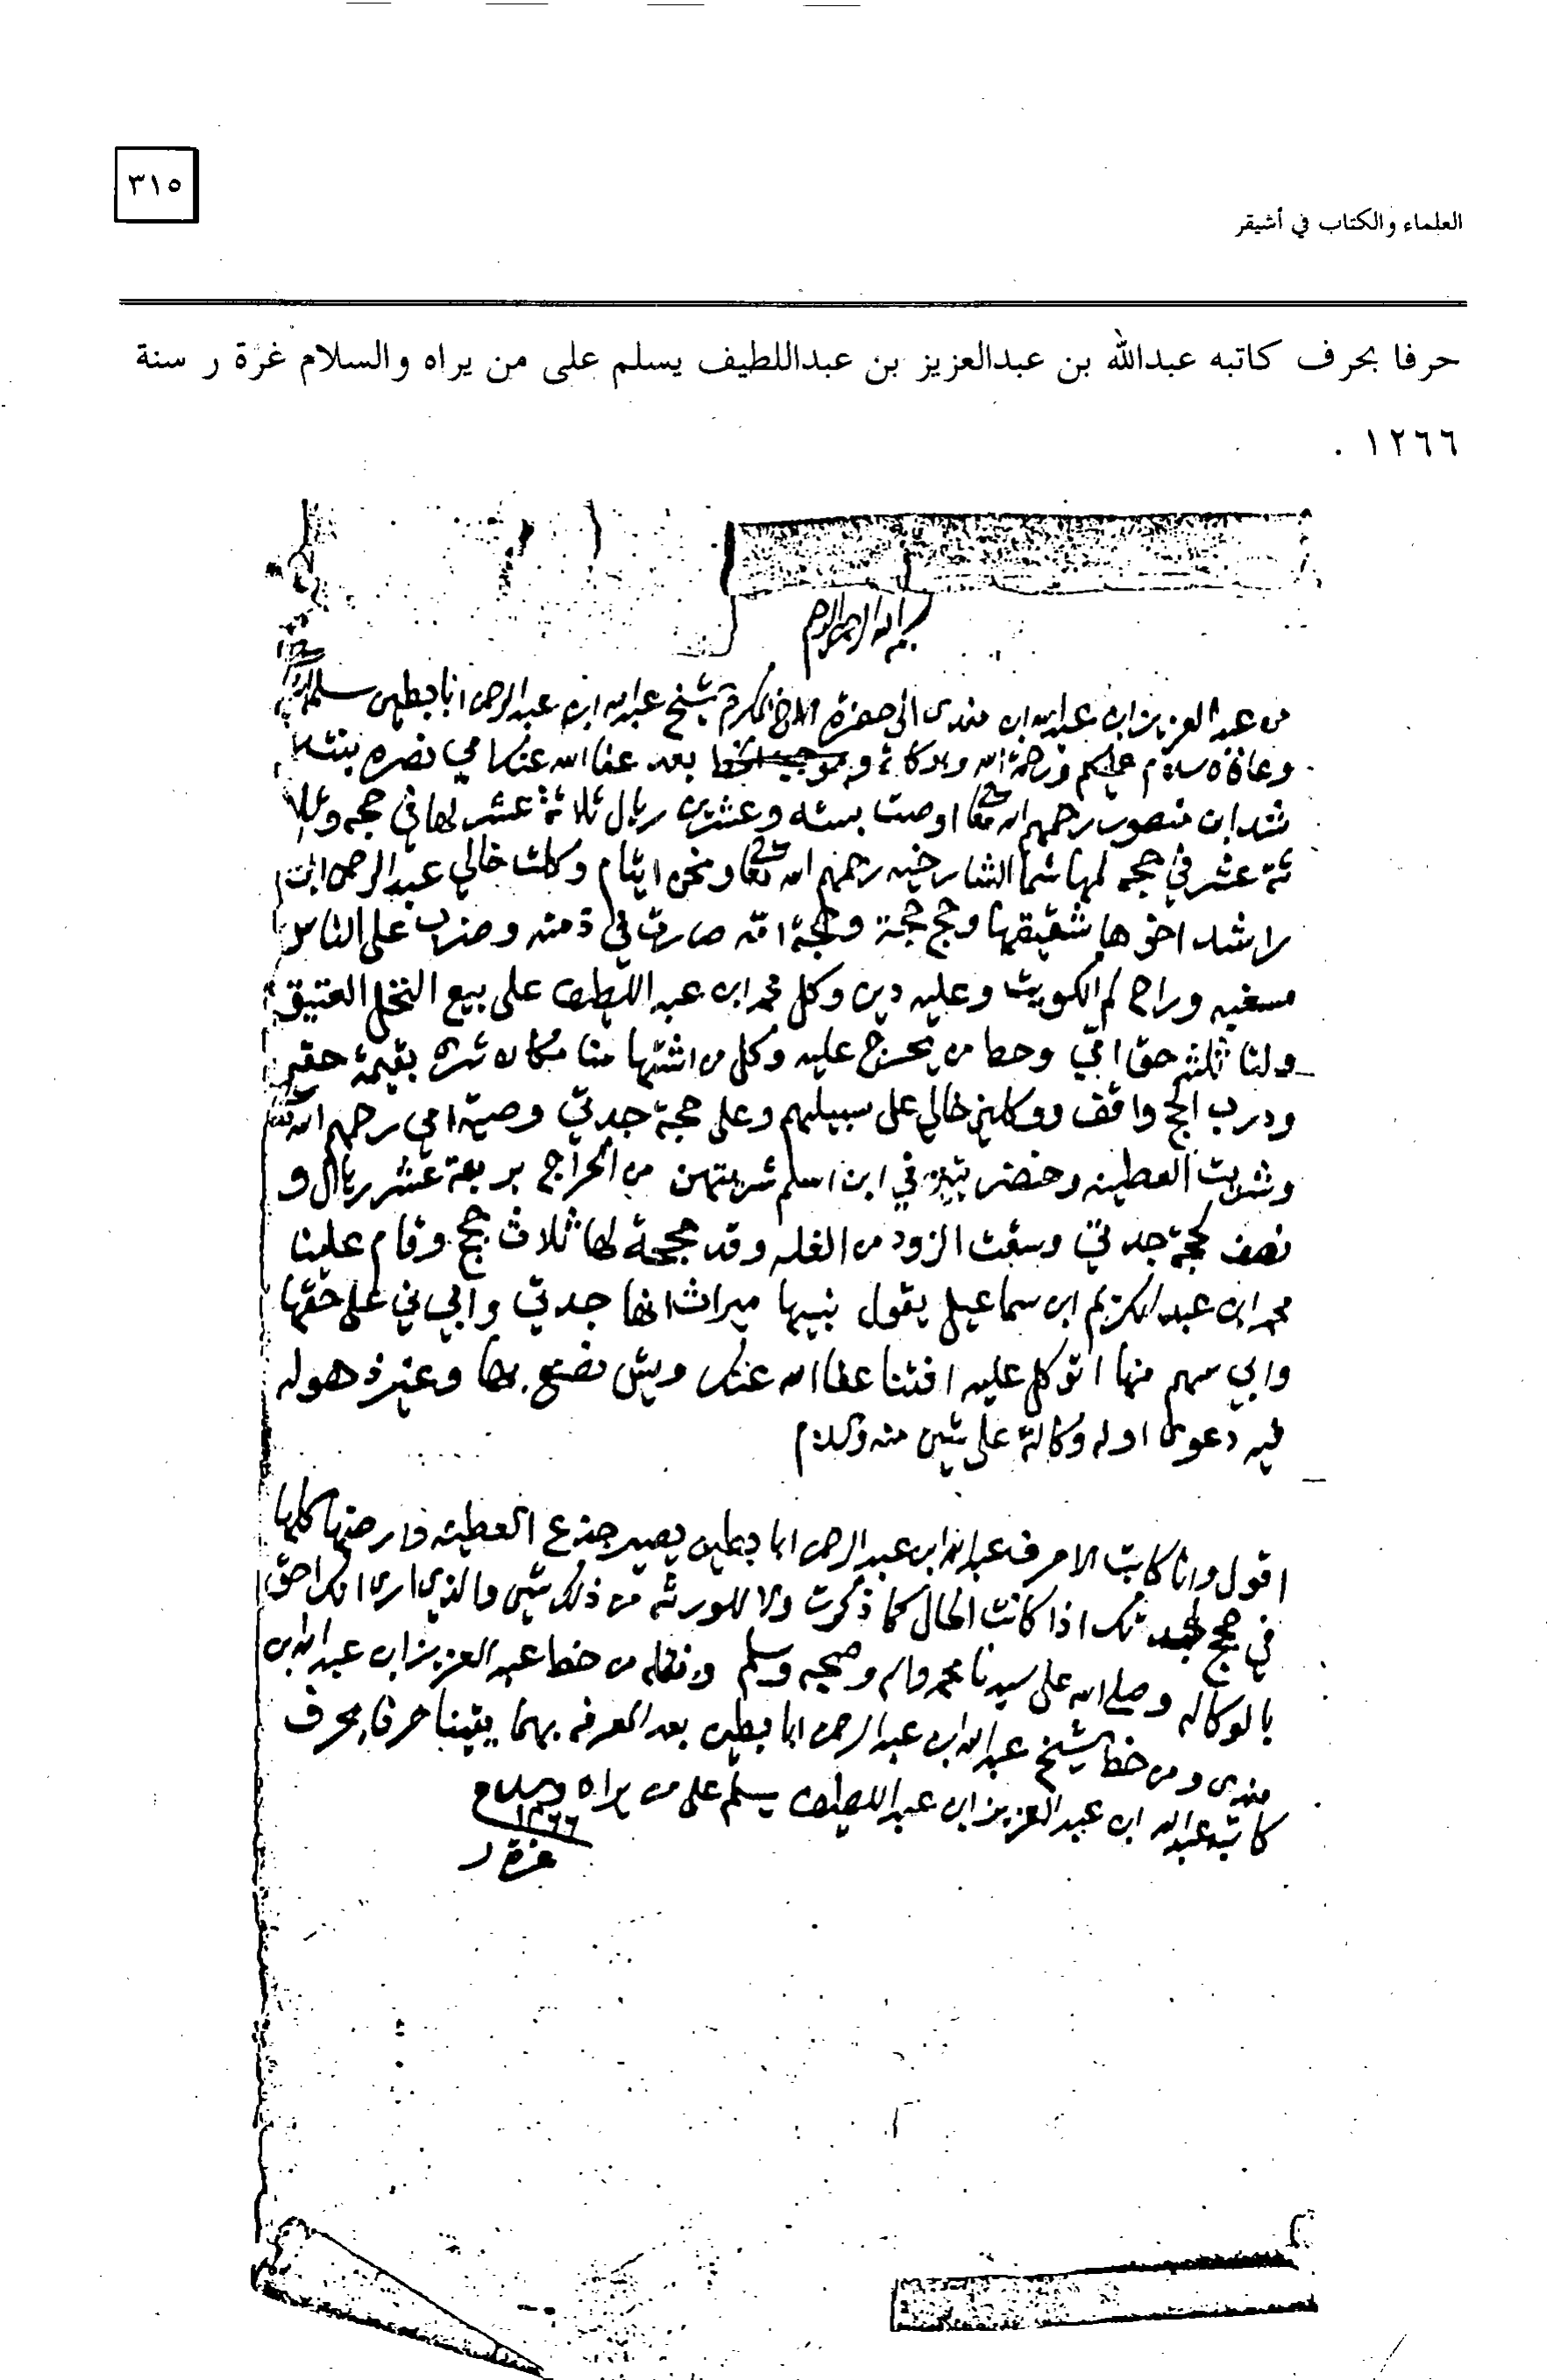 ٣١٥
العلماء والكتاب في أشيقر
حرفا بحرف كاتبه عبدالله بن عبدالعزيز بن عبداللطيف يسلم على من يراه والسلام غرة ر سنة
١٢٦٦ .
بسم الله الرحمن الرحيم
من عبد العزيز ابن عبدالله ابن مندى الى حضرة الاخ المكرم الشيخ عبدالله ابن عبدالرحمن ابابطين سلمه الله
وعافاه سلام عليكم ورحمة الله وبركاته وموجب الخط بعد عفا الله عنك امي نصره بنت
شد ابن منصور رحمهم الله تعا اوصت بسته وعشرين ريال ثلاثة عشر لها في حجه وثلا
ثة عشر في حجه لمها شما رحمهم الله تعا ونحن ايتام وكلت خالي عبدالرحمن ابن
راشد اخوها شقيقها وحج حجة وحجة امه صارت في ذمته وضرب على الناس
مسغبه وراح للكويت وعليه دين وكل محمد ابن عبد اللطيف على بيع النخل العتيق
ولنا ثلثه حق امي وحط من يحرج عليه وكل من اشتها منا مكان شره بقيمة حقير
ودرب الحج واقف ووكلني خالي على سبيلهم وعلى حجة جدتي وصية امي رحمهم الله
وشريت العطينه وخضر في ابن اسلم شريتهن من الحراج بربعة عشر ريال و
نصف لحجة جدتي وسقت الزود من الغله وقد حججة لها ثلاث حجج وقام علينا
محمد ابن عبد الكريم ابن سماعيل يقول نبيها ميراث انها جدتي وابي على حقها
وابي سهم منها اتوكل عليه افتنا عفا الله عنك ويش نصنع بها وغيره هوله
فيه دعوى اوله وكالة على شي منه والسلام
اقول وانا كاتب الاحرف عبدالله ابن عبدالرحمن ابا بطين يصير جذع العطينه وارضها كلها
في حجج لجدتك اذا كانت الحال كما ذكرت ولا للورثه من ذلك شي والذي ارى انك احق
بالوكاله وصلى الله على سيدنا محمد واله وصحبه وسلم ونقله من خط عبد العزيز ابن عبدالله ابن
مندى ومن خط الشيخ عبدالله ابن عبدالرحمن ابا بطين بعد المعرفه بهما يقينا حرفا بحرف
كاتبه عبدالله ابن عبد العزيز ابن عبد اللطيف يسلم على من يراه والسلام
١٢٦٦
غرة ر